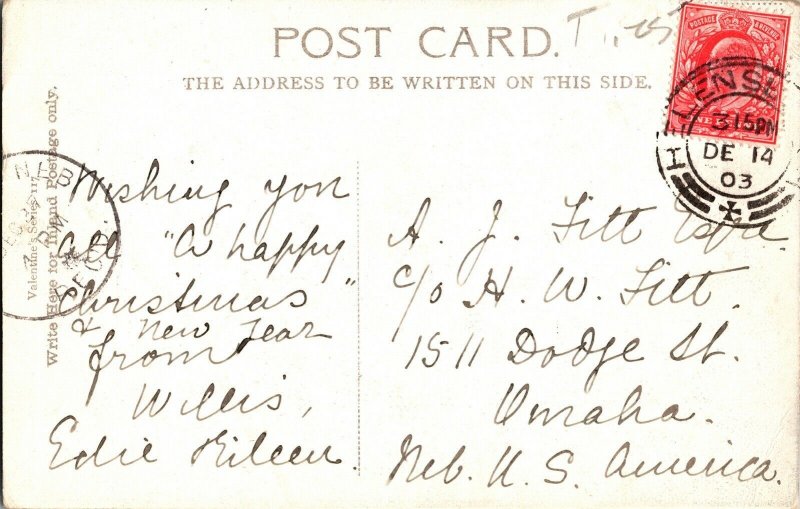 POST CARD.
THE ADDRESS TO BE WRITTEN ON THIS SIDE.
POSTAGE & REVENUE
3 15 PM
DE 14
03
NEB
REC'D.
Valentine's Series 117
Write Here for Inland Postage only.
Wishing you
all "A happy
Christmas"
& New Year
from
Willis,
Edie Eileen.
A. J. Fitt Esqre
c/o H. W. Fitt.
1511 Dodge St.
Omaha.
Neb. U. S. America.